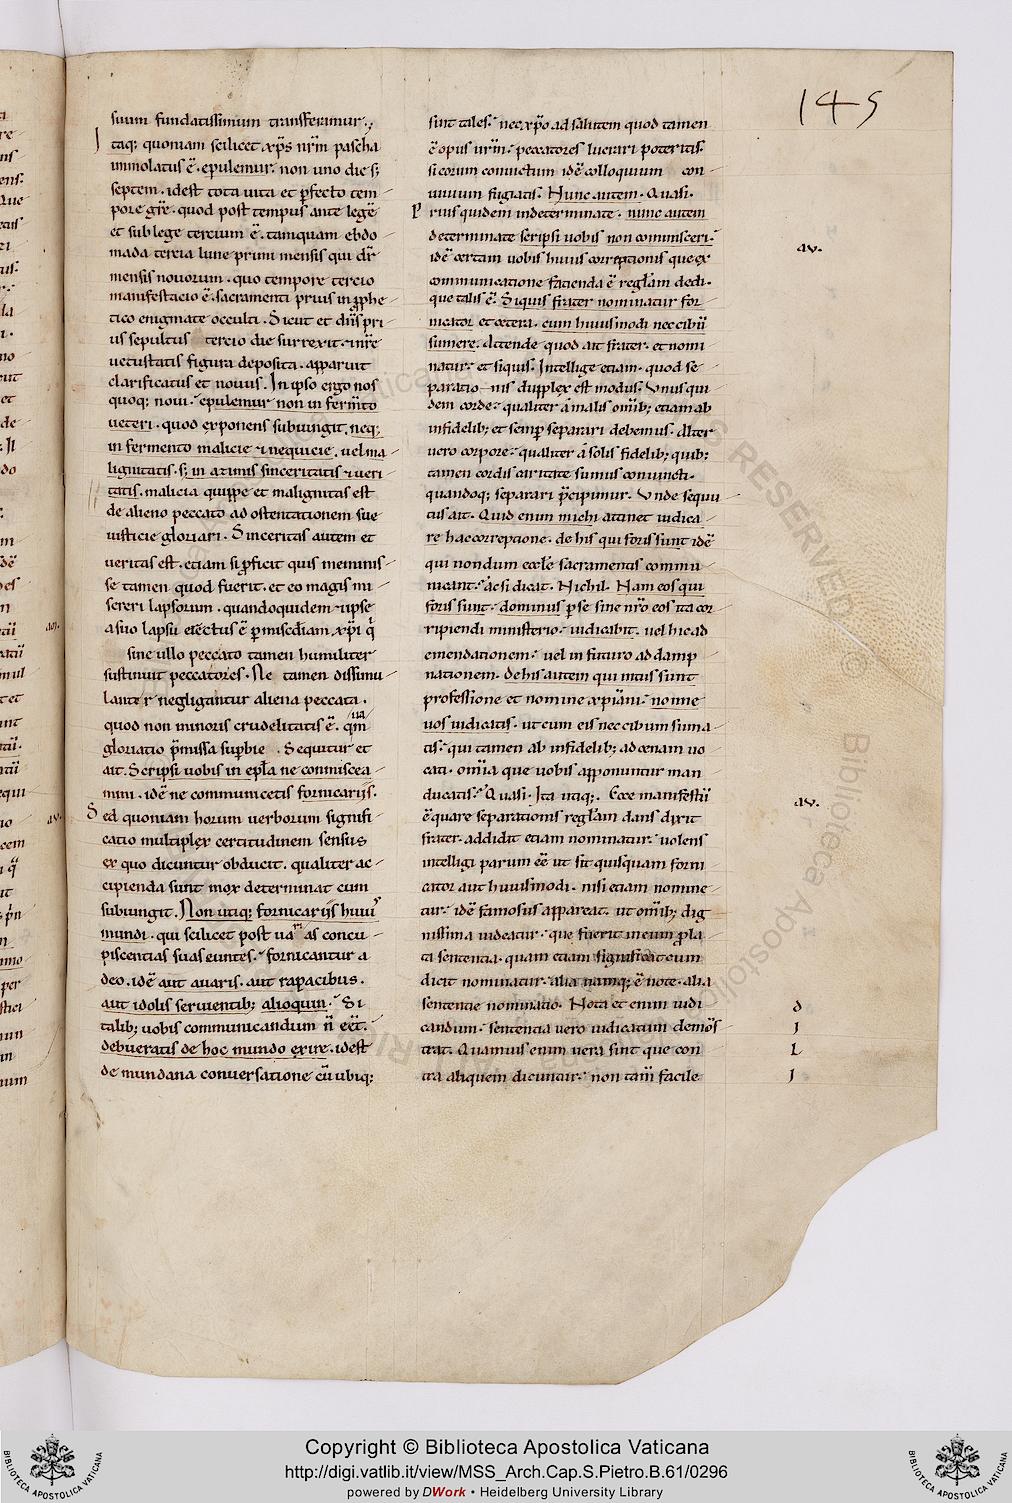 145
suum fundatissimum transferimur.
Itaq; quoniam scilicet xp̄s nr̄m pascha
immolatus ē. epulemur. non uno die s;
septem. idest tota uita et ꝑfecto tem
pore grē. quod post tempus ante legē
et sub lege tercium ē. tamquam ebdo
mada tercia lune primi mensis qui dr̄
mensis nouorum. quo tempore tercio
manifestacio ē. sacramenti prius in ꝓphe
tico enigmate occulti. Sicut et dn̄s pri
us sepultus tercio die surrexit. ⁊ nr̄e
uetustatis figura deposita. apparuit
clarificatus et nouus. In ipso ergo nos
quoq; noui. epulemur non in ferm̄to
ueteri. quod exponens subiungit. neq;
in fermento malicie ⁊ nequicie. uel ma
lignitatis. s; in azimis sinceritatis ⁊ ueri
tatis. malicia quippe et malignitas est
de alieno peccato ad ostentationem sue
iusticie gloriari. Sinceritas autem et
ueritas est. etiam si ꝓficit quis meminis
se tamen quod fuerit. et eo magis mi
sereri lapsorum. quandoquidem ⁊ ipse
a suo lapsu erectus ē ꝑ misc̄diam xp̄i q̄
sine ullo peccato tamen humiliter
sustinuit peccatores. Ne tamen dissimu
lanter negligantur aliena peccata.
quod non minoris crudelitatis ē. qm̄
gloriatio p̄missa supbie. Sequitur et
ait. Scripsi uobis in epl̄a ne commiscea
mini. idē ne communicetis fornicarijs.
Sed quoniam horum uerborum signifi
catio multiplex certitudinem sensus
ex quo dicuntur obducit. qualiter ac
cipienda sunt mox determinat cum
subiungit. Non utiq; fornicarijs huiuˀ
mundi. qui scilicet post uanas concu
piscentias suas euntes. fornicantur a
deo. idē aut auaris. aut rapacibus.
aut idolis seruientib; alioquin. Si
talib; uobis communicandum n̄ eēt.
debueratis de hoc mundo exire. idest
de mundana conuersatione cū ubiq;
sint tales. nec xp̄o ad salutem quod tamen
ē opus ur̄m. peccatores lucrari poteritis.
si eorum conuictum idē colloquium con
uiuium fugiatis. Hunc autem. Quasi.
Prius quidem indeterminate. nunc autem
determinate scripsi uobis non commisceri.
idē certam uobis huius correptionis que ex
communicatione facienda ē regl̄am dedi.
que talis ē. Siquis frater nominatur for
nicator et cetera. cum huiusmodi nec cibū
sumere. Attende quod ait frater. et nomi
natur. et siquis. Intellige etiam. quod se
paratio nis dupplex est modus. Vnus qui
dem corde. qualiter a malis omīb; etiam ab
infidelib; et semp separari debemus. Alter
uero corpore. qualiter a solis fidelib; quib;
tamen cordis caritate sumus coniuncti.
quandoq; separari p̄cipimur. Vnde sequi
tur ait. Quid enim michi attinet iudica
re hac correptione. de his qui foris sunt idē
qui nondum eccl̄e sacramentis commu
nicant. ac si dicat. Nichil. Nam eos qui
foris sunt. dominus ꝑ se sine nr̄o eos ita cor
ripiendi ministerio. iudicabit. uel hic ad
emendationem. uel in futuro ad damp
nationem. de his autem qui intus sunt
professione et nomine xp̄iani. nonne
uos iudicatis. ut cum eis nec cibum suma
tis. qui tamen ab infidelib; ad cenam uo
cati. omīa que uobis apponuntur man
ducatis. Quasi. Ita utiq;. Ecce manifestū
ē quare separationis regl̄am dans dixit
frater. addidit etiam nominatur. uolens
intelligi parum eē ut sit quisquam forni
cator aut huiusmodi. nisi etiam nomine
tur. idē famosus appareat. ut omīb; dig
nissima uideatur. que fuerit in eum ꝓla
ta sententia. quam etiam significat cum
dicit nominatur. alia namq; ē note. alia
sententie nominatio. Nota et enim iudi
candum. sententia uero iudicatum demōs
trat. Quamuis enim uera sint que con
tra aliquem dicuntur. non tam̄ facile
av.
av.
Copyright © Biblioteca Apostolica Vaticana
http://digi.vatlib.it/view/MSS_Arch.Cap.S.Pietro.B.61/0296
powered by DWork • Heidelberg University Library
BIBLIOTECA APOSTOLICA VATICANA
BIBLIOTECA APOSTOLICA VATICANA